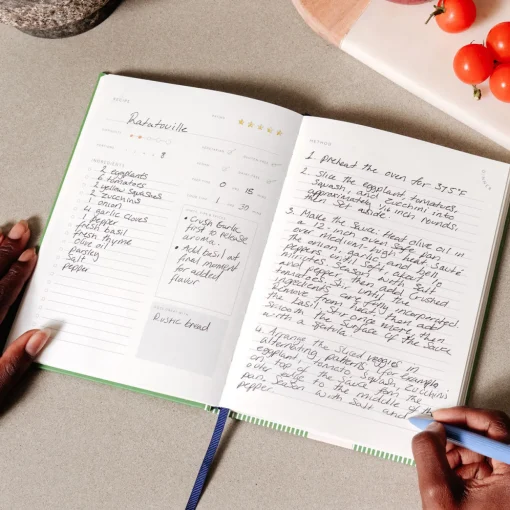 Ratatouille
INGREDIENTS
2 eggplants
6 tomatoes
2 yellow squashes
2 zucchinis
1 onion
4 garlic cloves
1 pepper
fresh basil
fresh thyme
olive oil
parsley
Salt
pepper
8
0 15
1 30
• Crush Garlic
first to release
aroma.
• Add basil at
final moment
for added
flavor
Rustic bread
METHOD
1. Preheat the oven for 375°F
2. Slice the eggplant, tomatoes,
squash, and zucchini into
approximately 1/4 inch rounds,
then set aside.
3. Make the sauce: Heat olive oil in
a 12-inch oven safe pan
over medium-high heat. Sauté
the onion, garlic and bell
peppers until soft, about 10
minutes. Season with salt
and pepper, then add crushed
tomatoes. Stir until the
ingredients are fully incorporated.
Remove from heat, then add
the basil. Stir once more, then
smooth the surface of the sauce
with a spatula
4. Arrange the sliced veggies in
alternating patterns, (for example:
eggplant, tomato, squash, zucchini)
on top of the sauce from the
outer edge to the middle of the
pan. Season with salt and
pepper